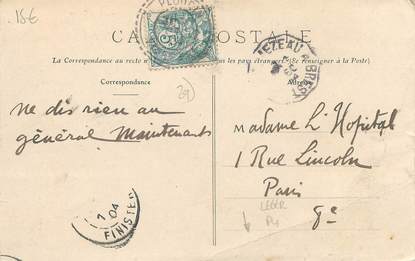 15€
CARTE POSTALE
La Correspondance au recto n'est pas pour les pays étrangers (Se renseigner à la Poste)
Correspondance
Adresse
EZEAU A BREST
29
ne dis rien au
général Maintenant
Madame L'Hopital
1 Rue Lincoln
Paris
8e
LEGER
Pli
04
FINISTE